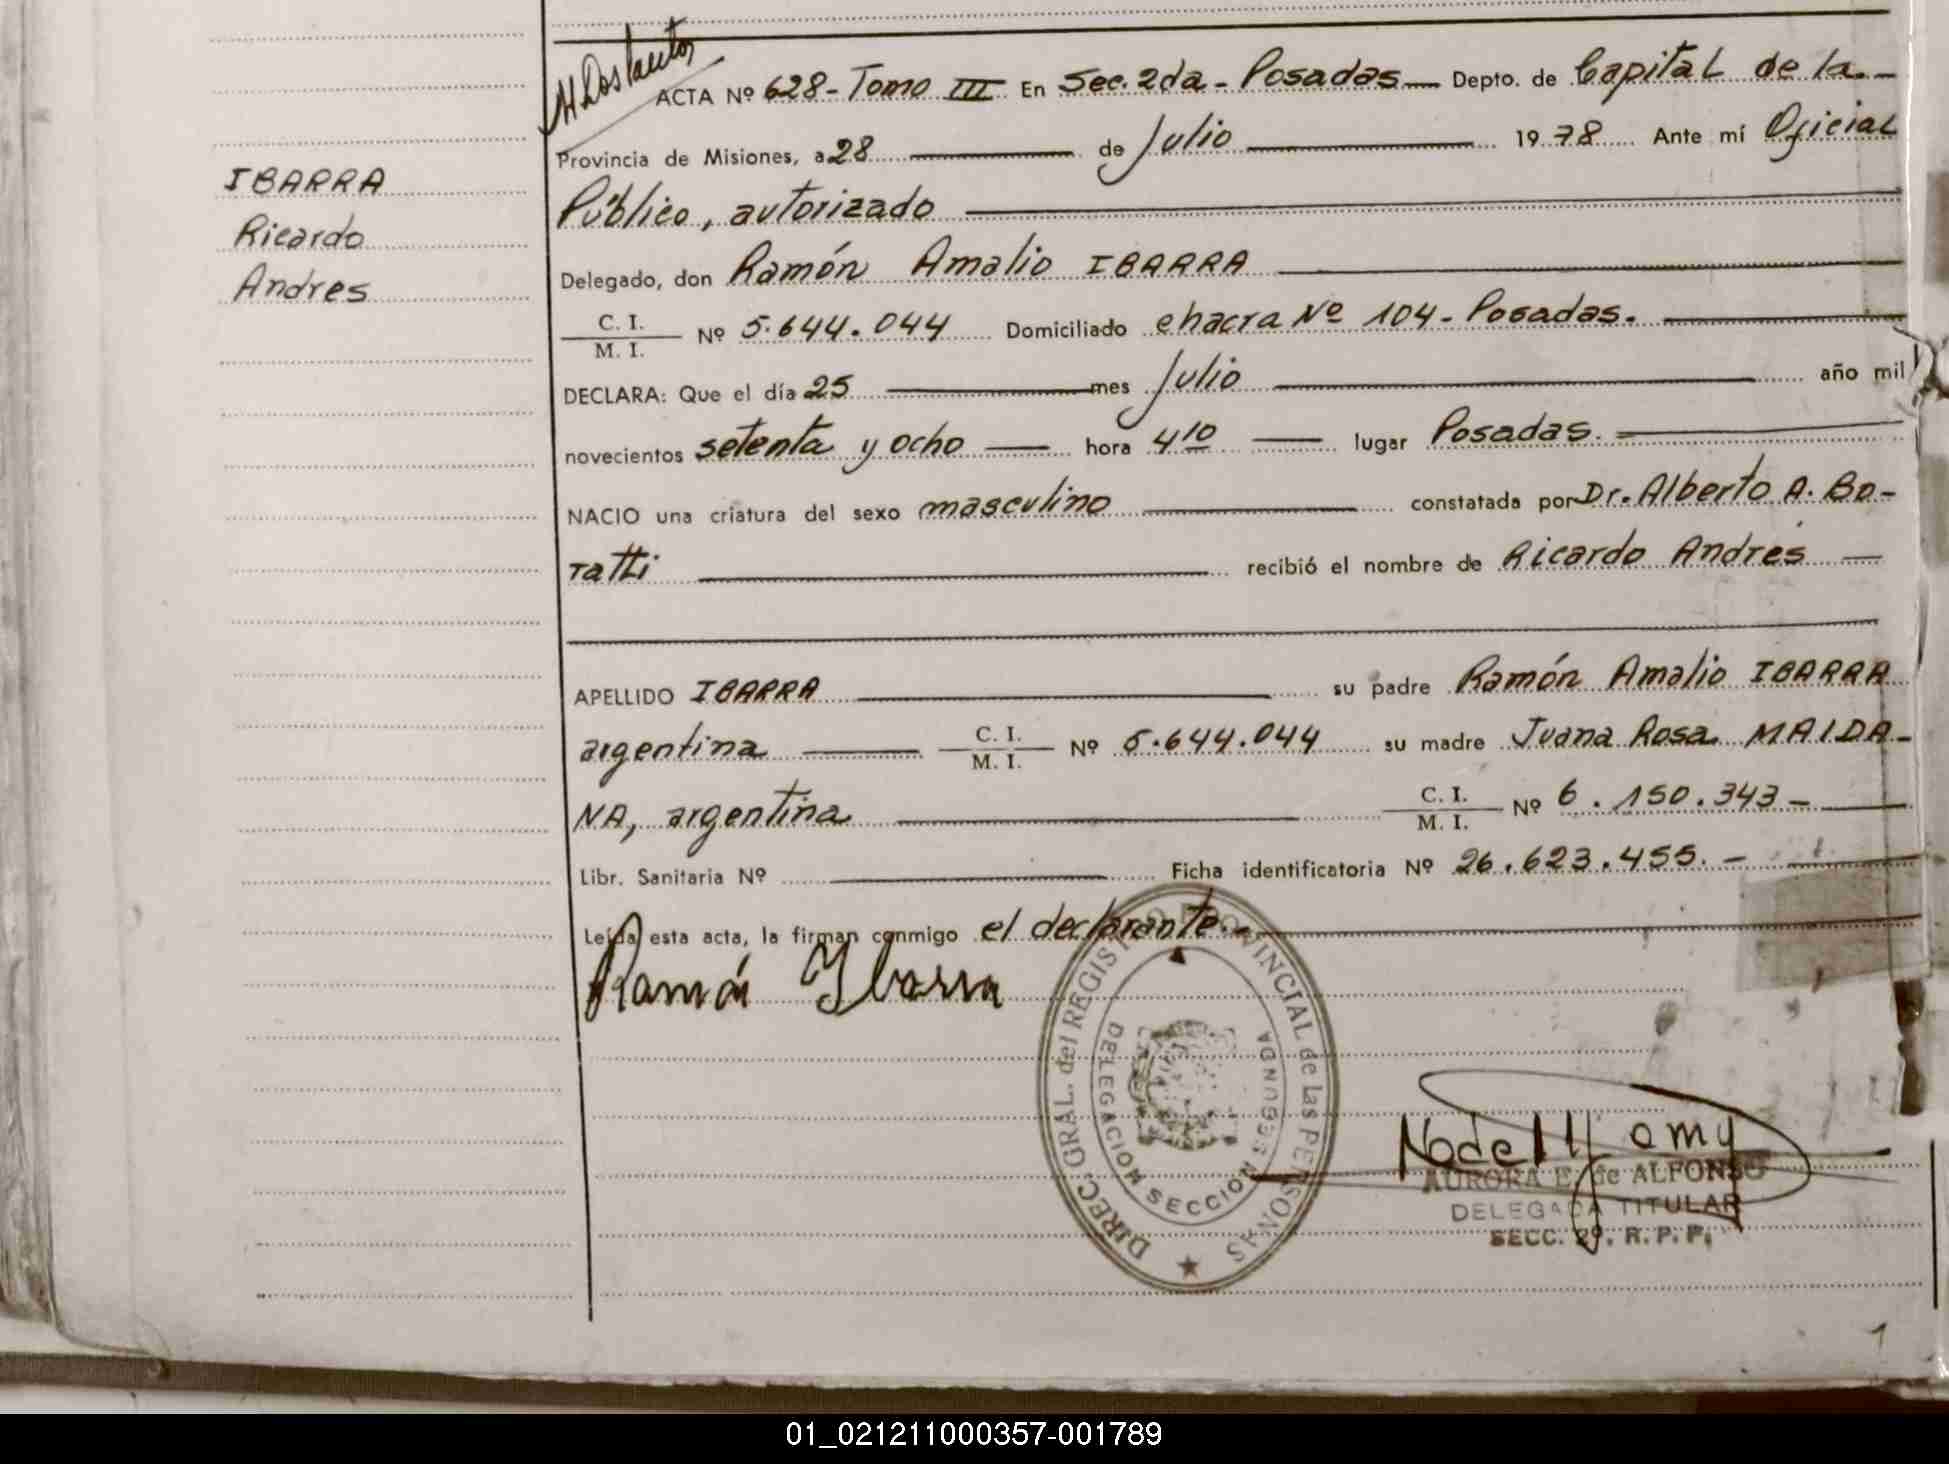 ACTA Nº 628 - Tomo III En Sec. 2da - Posadas — Depto. de Capital de la -
Provincia de Misiones, a 28 de Julio 1978 Ante mí Oficial
Público, autorizado
Delegado, don Ramón Amalio IBARRA
C. I.
M. I. Nº 5.644.044 Domiciliado chacra Nº 104 - Posadas.
DECLARA: Que el día 25 mes Julio año mil
novecientos setenta y ocho hora 4 10 lugar Posadas.
NACIO una criatura del sexo masculino constatada por Dr. Alberto A. Bo-
ratti recibió el nombre de Ricardo Andres
APELLIDO IBARRA su padre Ramón Amalio IBARRA
argentina C. I.
M. I. Nº 5.644.044 su madre Juana Rosa MAIDA-
NA, argentina C. I.
M. I. Nº 6.150.343 -
Libr. Sanitaria Nº Ficha identificatoria Nº 26.623.455. -
Leída esta acta, la firman conmigo el declarante. -
Ramón Ybarra
IBARRA
Ricardo
Andres
DIREC. GRAL. del REGISTRO PROVINCIAL de Las PERSONAS
DELEGACION SECCION SEGUNDA
AURORA E. de ALFONSO
DELEGADA TITULAR
SECC. 2ª. R. P. P.
1
01_021211000357-001789